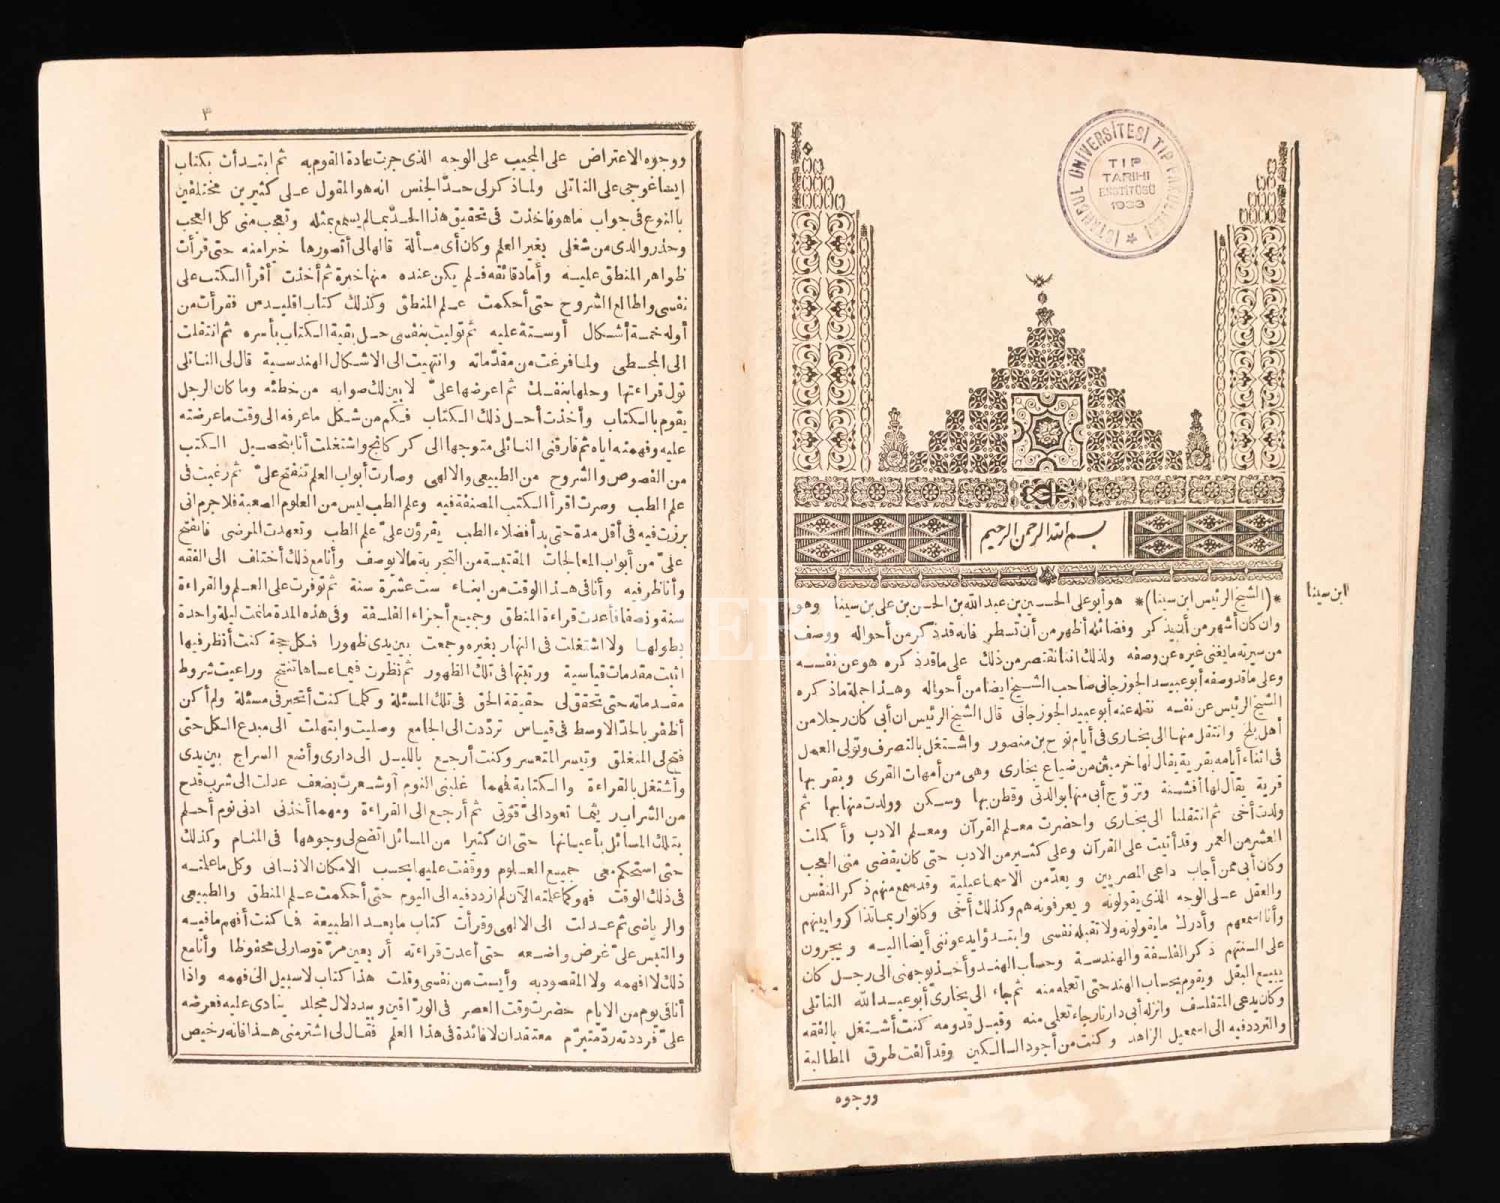 İSTANBUL ÜNİVERSİTESİ TIP FAKÜLTESİ
TIP
TARİHİ
ENSTİTÜSÜ
1933
بسم الله الرحمن الرحيم
ابن سينا
*(الشيخ الرئيس ابن سينا)* هو أبو على الحسين بن عبد الله بن الحسن بن على بن سينا وهو
وان كان أشهر من أن يذكر وفضائله أظهر من أن تسطر فانه قد ذكر من أحواله ووصف
من سيرته ما يغنى غيره عن وصفه ولذلك اننا نقتصر من ذلك على ما قد ذكره هو عن نفسه
وعلى ما قد وصفه أبو عبيد الجوزجانى صاحب الشيخ ايضا من أحواله وهذا جملة ما ذكره
الشيخ الرئيس عن نفسه نقله عنه أبو عبيد الجوزجانى قال الشيخ الرئيس ان أبى كان رجلا من
أهل بلخ وانتقل منها الى بخارى فى أيام نوح بن منصور واشتغل بالتصرف وتولى العمل
فى اثناء أيامه بقرية يقال لها خرميثن من ضياع بخارى وهى من أمهات القرى وبقربها
قرية يقال لها أفشنة وتزوج أبى منها بوالدتى وقطن بها وسكن وولدت منها بها ثم
ولدت أخى ثم انتقلنا الى بخارى واحضرت معلم القرآن ومعلم الادب وأكملت
العشر من العمر وقد أتيت على القرآن وعلى كثير من الادب حتى كان يقضى منى العجب
وكان أبى ممن أجاب داعى المصريين ويعد من الاسماعيلية وقد سمع منهم ذكر النفس
والعقل على الوجه الذى يقولونه ويعرفونه هم وكذلك أخى وكانوا ربما تذاكروا بينهم
وأنا اسمعهم وأدرك ما يقولونه ولا تقبله نفسى وابتدؤا يدعوننى أيضا اليه ويجرون
على السنتهم ذكر الفلسفة والهندسة وحساب الهند وأخذ يوجهنى الى رجل كان
يبيع البقل ويقوم بحساب الهند حتى اتعلمه منه ثم جاء الى بخارى أبو عبد الله الناتلى
وكان يدعى المتفلسف وانزله أبى دارنا رجاء تعلمى منه وقبل قدومه كنت أشتغل بالفقه
والتردد فيه الى اسمعيل الزاهد وكنت من أجود السالكين وقد ألفت طرق المطالبة
ووجوه
٣
ووجوه الاعتراض على المجيب على الوجه الذى جرت عادة القوم به ثم ابتدأت بكتاب
ايساغوجى على الناتلى ولما ذكر لى حد الجنس انه هو المقول على كثيرين مختلفين
بالنوع فى جواب ما هو فاخذت فى تحقيق هذا الحد بما لم يسمع بمثله وتعجب منى كل العجب
وحذر والدى من شغلى بغير العلم وكان أى مسألة قالها لى أتصورها خيرا منه حتى قرأت
ظواهر المنطق عليه وأما دقائقه فلم يكن عنده منها خبرة ثم أخذت أقرأ الكتب على
نفسى واطالع الشروح حتى أحكمت علم المنطق وكذلك كتاب اقليدس فقرأت من
أوله خمسة أشكال أوستة عليه ثم توليت بنفسى حل بقية الكتاب بأسره ثم انتقلت
الى المجسطى ولما فرغت من مقدماته وانتهيت الى الاشكال الهندسية قال لى الناتلى
تول قراءتها وحلها بنفسك ثم اعرضها على لا بين لك صوابه من خطئه وما كان الرجل
يقوم بالكتاب وأخذت أحل ذلك الكتاب فكم من شكل ما عرفه الى وقت ما عرضته
عليه وفهمته اياه ثم فارقنى الناتلى متوجها الى كركانج واشتغلت أنا بتحصيل الكتب
من الفصوص والشروح من الطبيعى والالهى وصارت أبواب العلم تنفتح على ثم رغبت فى
علم الطب وصرت اقرأ الكتب المصنفة فيه وعلم الطب ليس من العلوم الصعبة فلا جرم انى
برزت فيه فى أقل مدة حتى بدأ فضلاء الطب يقرؤن على علم الطب وتعهدت المرضى فانفتح
على من أبواب المعالجات المقتبسة من التجربة ما لا يوصف وأنا مع ذلك أختلف الى الفقه
وأناظر فيه وأنا فى هذا الوقت من ابناء ست عشرة سنة ثم توفرت على العلم والقراءة
سنة ونصفا فأعدت قراءة المنطق وجميع أجزاء الفلسفة وفى هذه المدة ما نمت ليلة واحدة
بطولها ولا اشتغلت فى النهار بغيره وجمعت بين يدى ظهورا فكل حجة كنت أنظر فيها
اثبت مقدمات قياسية ورتبتها فى تلك الظهور ثم نظرت فيما عساها تنتج وراعيت شروط
مقدماته حتى تحقق لى حقيقة الحق فى تلك المسئلة وكلما كنت أتحير فى مسئلة ولم أكن
أظفر بالحد الاوسط فى قياس ترددت الى الجامع وصليت وابتهلت الى مبدع الكل حتى
فتح لى المنغلق وتيسر المتعسر وكنت أرجع بالليل الى دارى وأضع السراج بين يدى
وأشتغل بالقراءة والكتابة فمهما غلبنى النوم أو شعرت بضعف عدلت الى شرب قدح
من الشراب ريثما تعود الى قوتى ثم أرجع الى القراءة ومهما أخذنى ادنى نوم أحلم
بتلك المسائل بأعيانها حتى ان كثيرا من المسائل اتضح لى وجوهها فى المنام وكذلك
حتى استحكم معى جميع العلوم ووقفت عليها بحسب الامكان الانسانى وكل ما علمته
فى ذلك الوقت فهو كما علمته الآن لم ازدد فيه الى اليوم حتى أحكمت علم المنطق والطبيعى
والرياضى ثم عدلت الى الالهى وقرأت كتاب ما بعد الطبيعة فما كنت أفهم ما فيه
والتبس على غرض واضعه حتى أعدت قراءته أربعين مرة وصار لى محفوظا وأنا مع
ذلك لا افهمه ولا المقصود به وأيست من نفسى وقلت هذا كتاب لا سبيل الى فهمه واذا
أنا فى يوم من الايام حضرت وقت العصر فى الوراقين وبيد دلال مجلد ينادى عليه فعرضه
على فرددته رد متبرم معتقد ان لا فائدة فى هذا العلم فقال لى اشتر منى هذا فانه رخيص